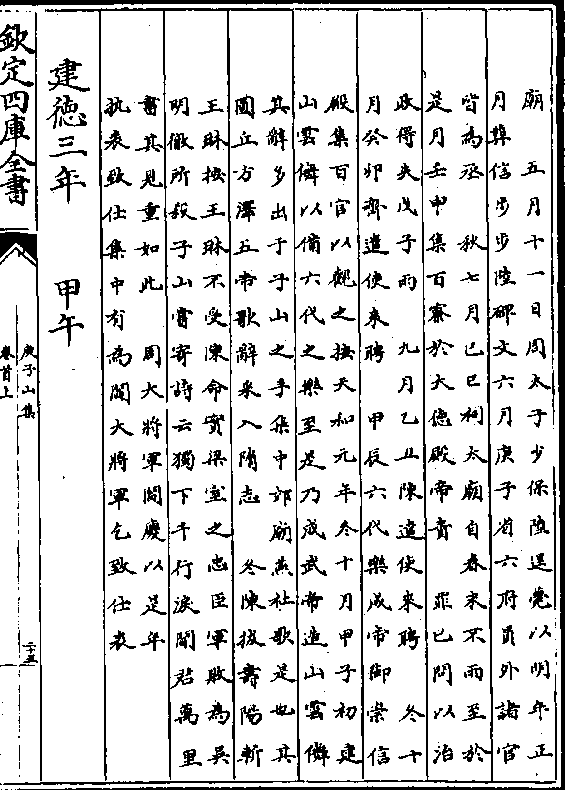 廟　五月十一日周太子少保陸逞薨以明年正
月葬信步步陸碑文六月庚子省六府員外諸官
皆為丞　秋七月己巳祠太廟自春末不雨至於
是月壬申集百寮於大德殿帝責　罪己問以治
政得失戊子雨　九月乙丑陳遣使來聘　冬十
月癸卯齊遣使來聘　甲辰六代樂成帝御崇信
殿集百官以觀之按天和元年冬十月甲子初建
山雲儛以備六代之樂至是乃成武帝造山雲儛
其辭多出于子山之手集中郊廟燕社歌是也其
圜丘方澤五帝歌辭采入隋志　冬陳拔壽陽斬
王琳按王琳不受陳命實梁室之忠臣軍敗為吳
明徹所殺子山嘗寄詩云獨下千行淚開君萬里
書其見重如此　周大將軍閻慶以是年
抗表致仕集中有為閻大將軍乞致仕表
建德三年　甲午
欽定四庫全書
庾子山集
卷首上
二十五